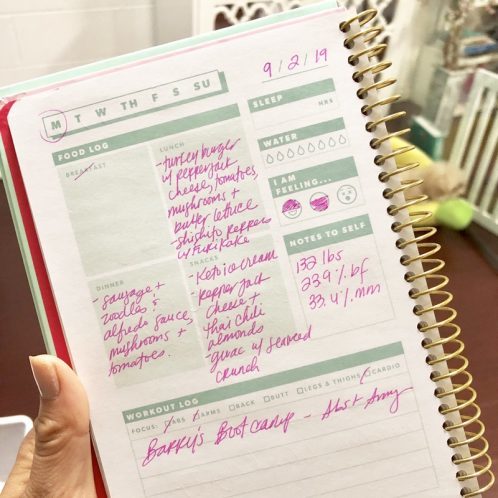 9/2/19
M T W TH F S SU
FOOD LOG
BREAKFAST
LUNCH
- turkey burger
w/ pepperjack
cheese, tomatoes,
mushrooms +
butter lettuce
- shishito peppers
w/ furikake
DINNER
- sausage +
zoodles &
alfredo sauce,
mushrooms +
tomatoes.
SNACKS
- Keto ice cream
- pepper jack
cheese +
thai chili
almonds
- guac w/ seaweed
crunch
SLEEP
HRS
WATER
I AM
FEELING...
NOTES TO SELF
132 lbs
23.9% bf
33.4% mm
WORKOUT LOG
FOCUS: ABS ARMS BACK BUTT LEGS & THIGHS CARDIO
Barry's Bootcamp -